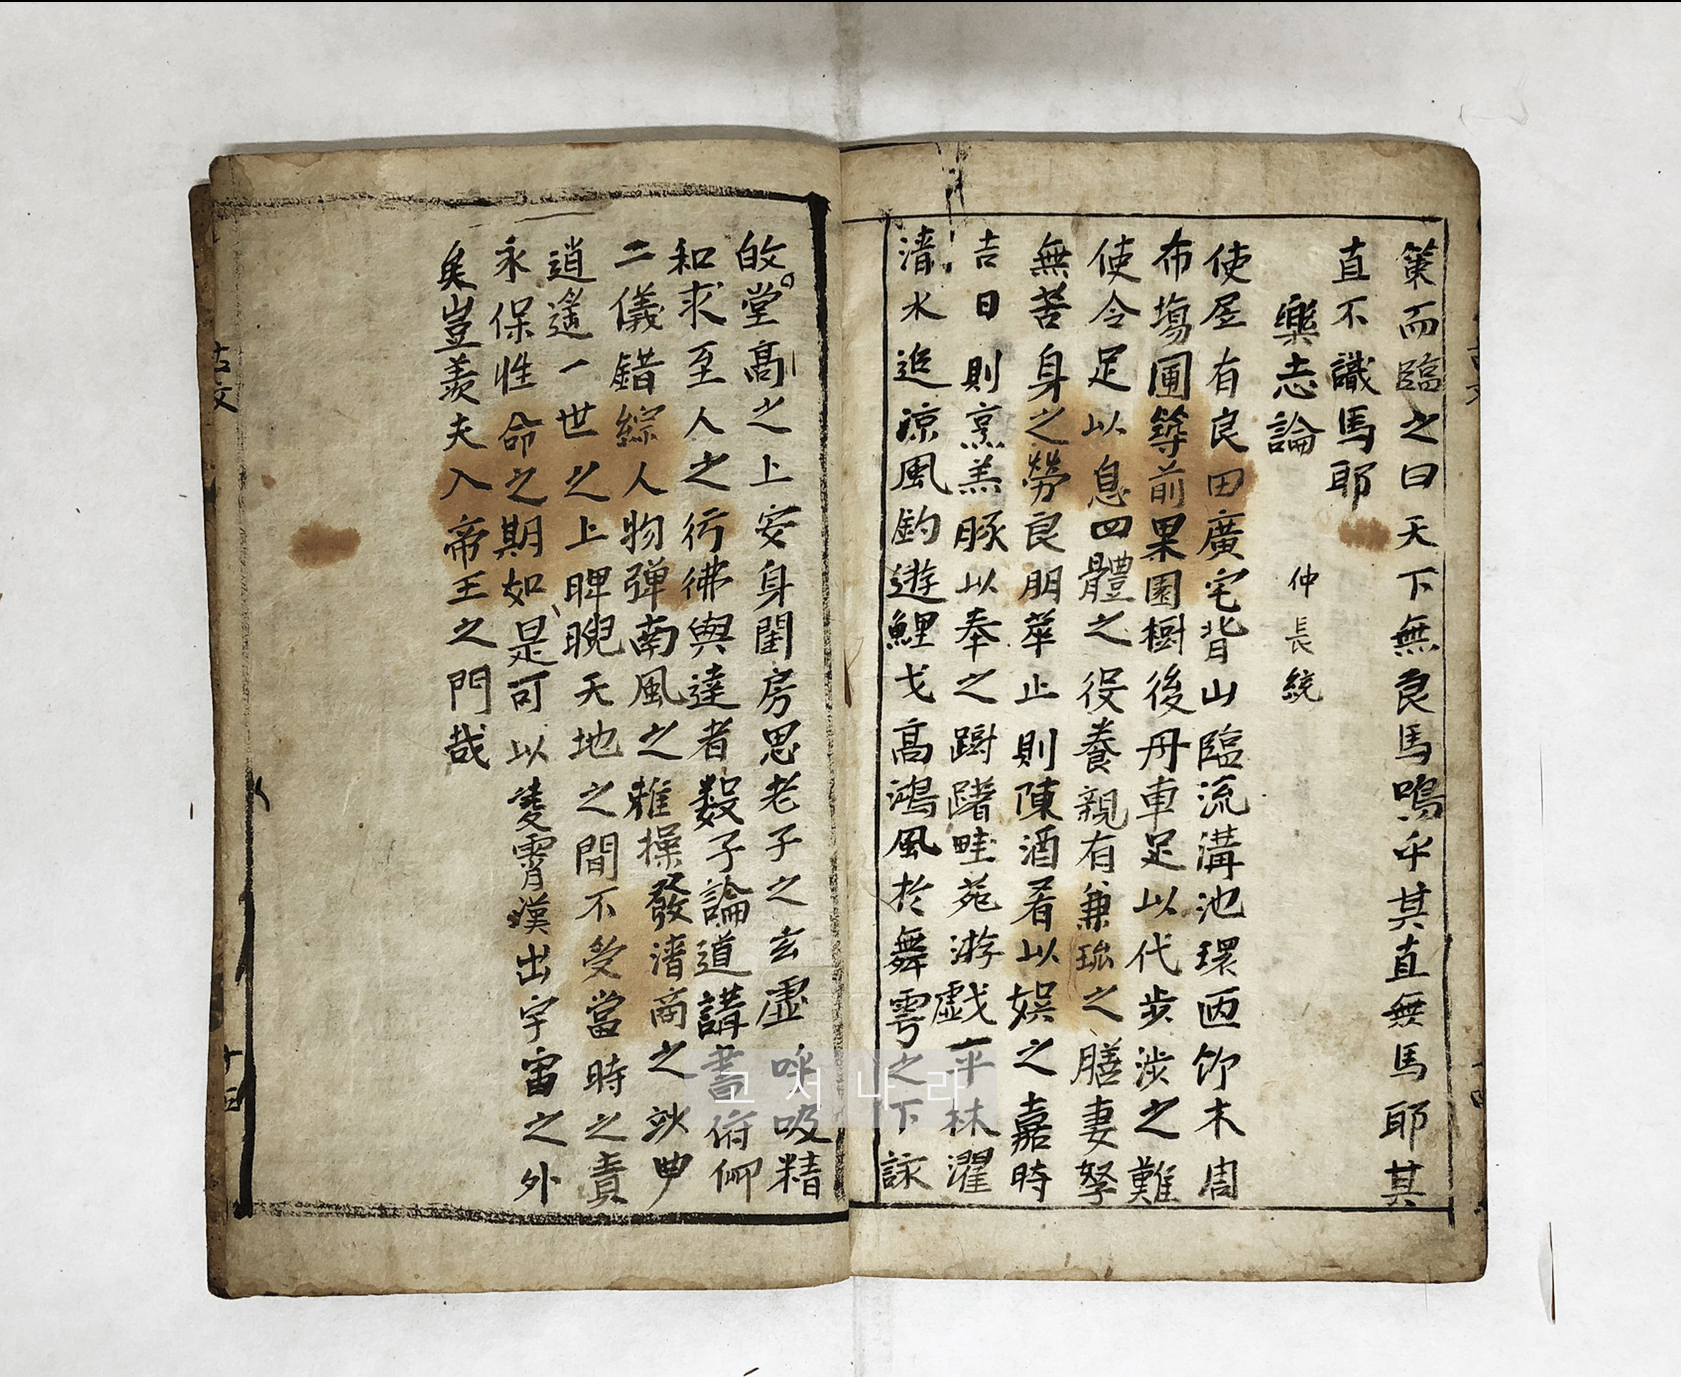 策而臨之曰天下無良馬嗚乎其直無馬耶其
直不識馬耶
樂志論 仲長統
使居有良田廣宅背山臨流溝池環匝竹木周
布場圃築前果園樹後舟車足以代步涉之難
使令足以息四體之役養親有兼珍之膳妻孥
無苦身之勞良朋萃止則陳酒肴以娛之嘉時
吉日則烹羔豚以奉之躕躇畦苑游戱平林濯
淸水追凉風釣遊鯉弋高鴻風於舞雩之下詠
故堂高之上安身閨房思老子之玄虛呼吸精
和求至人之彷彿與達者數子論道講書俯仰
二儀錯綜人物彈南風之雅操發淸商之妙曲
逍遙一世之上睥睨天地之間不受當時之責
永保性命之期如是可以凌霄漢出宇宙之外
矣豈羨夫入帝王之門哉
古文
十四
고서나라